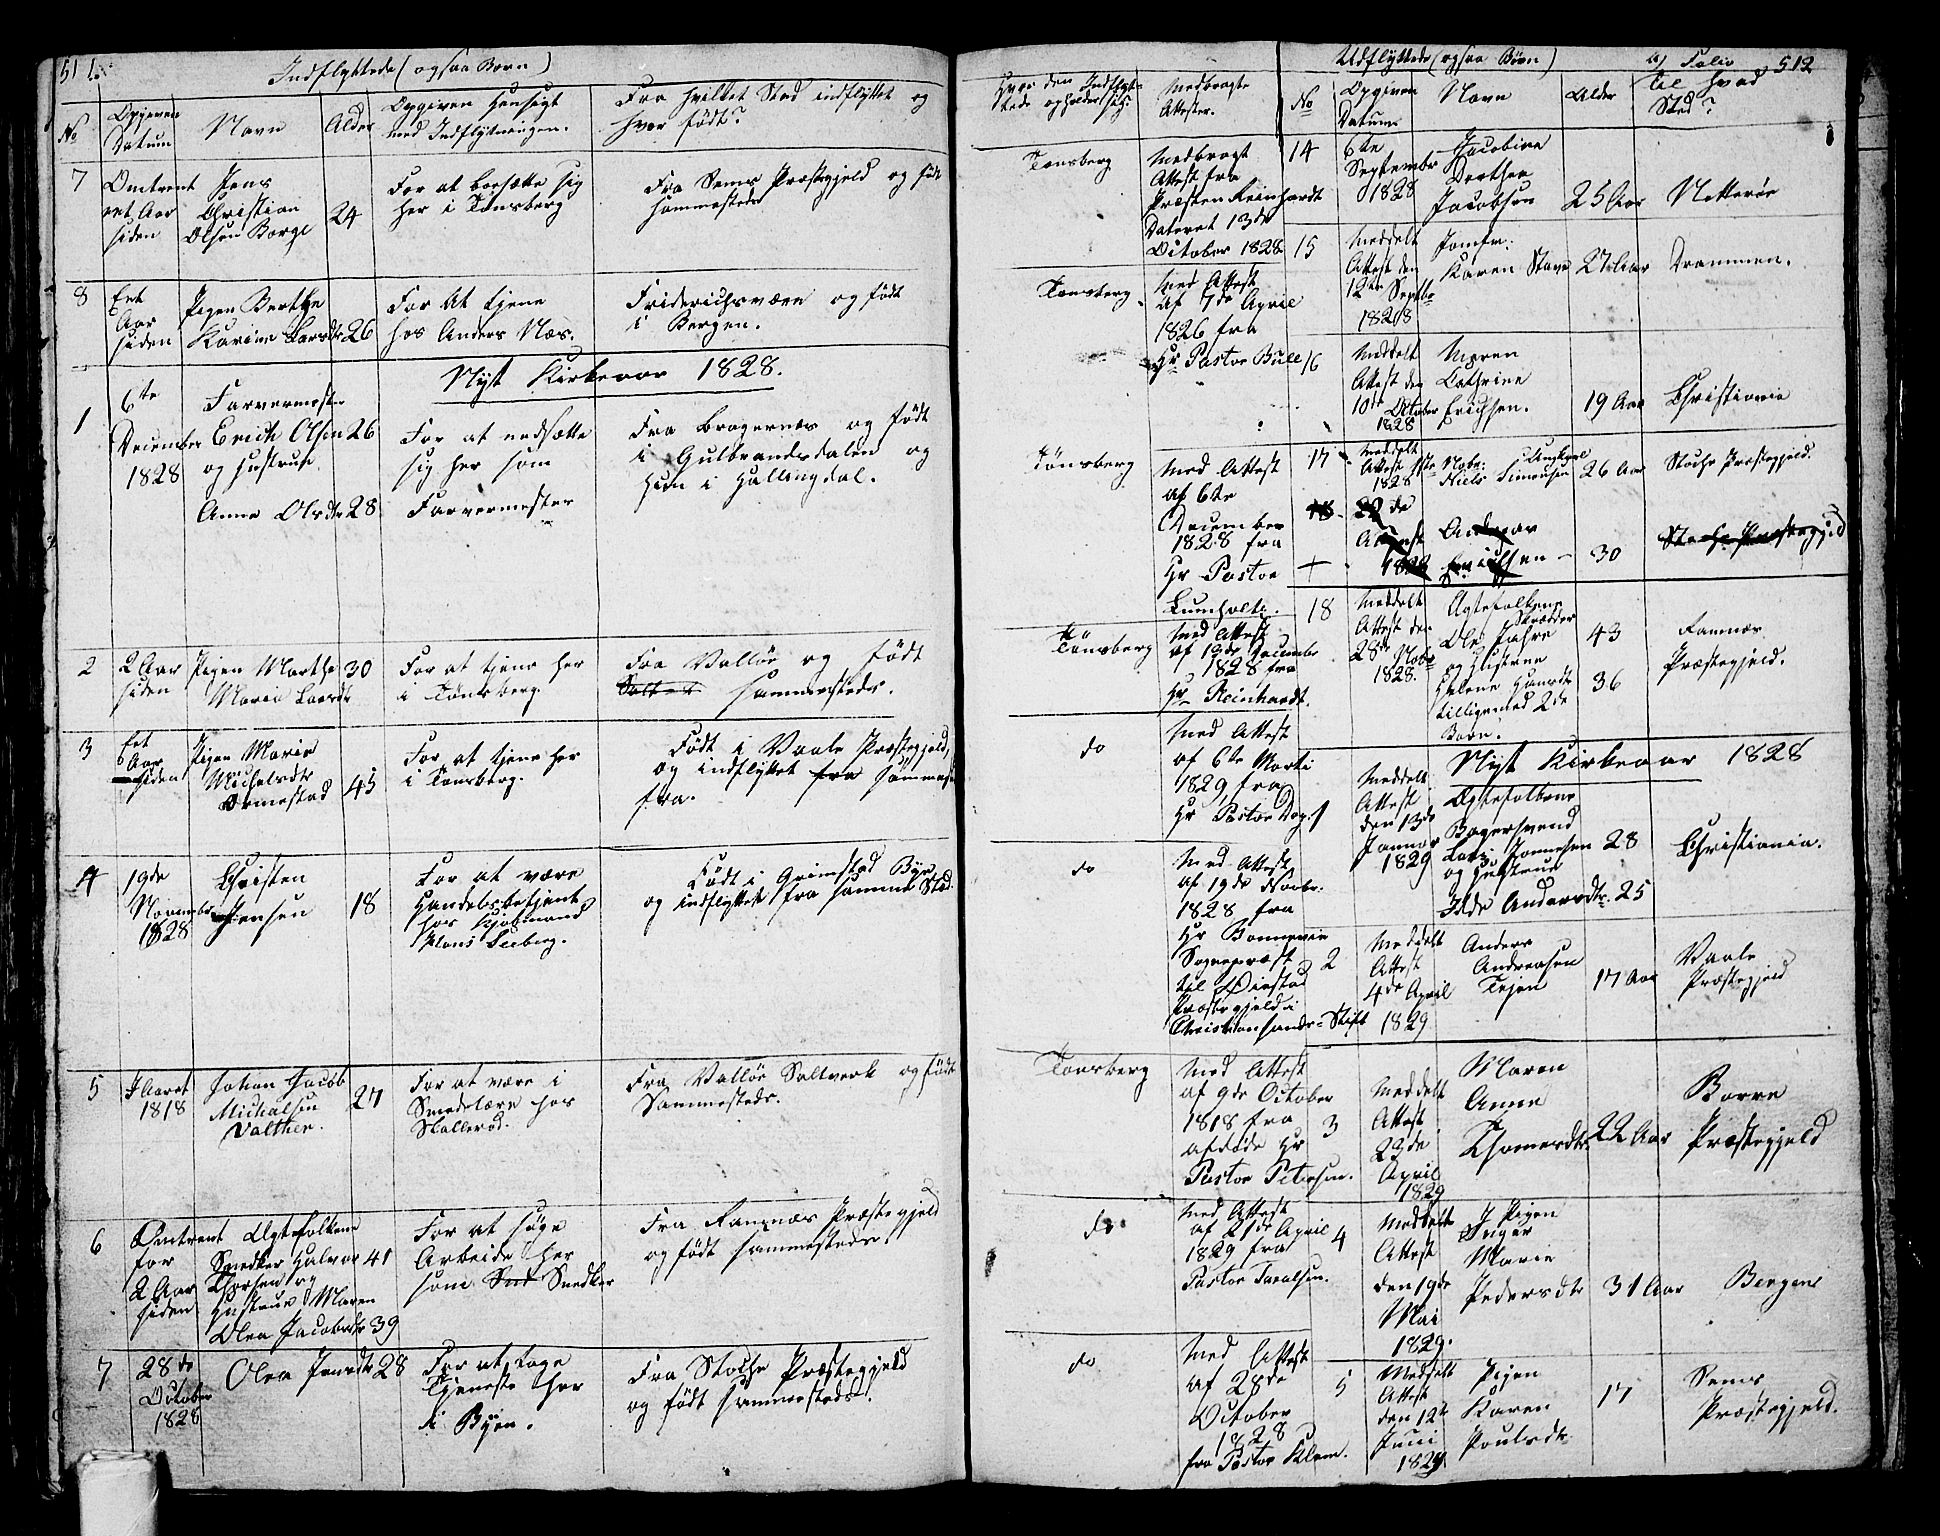 511.
Indflyttede (ogsaa Børn)
No
Opgiven Datum
Navn
Alder
Opgiven Hensigt
med Indflytningen.
Fra hvilket Sted indflyttet og
hvor født?
7
Omtrent
eet Aar
siden
Jens
Christian
Olsen Borge
24
For at bosætte sig
her i Tønsberg
Fra Sems Præstegjeld og født
sammesteds
8
Eet
Aar
siden
Pigen Berthe
Karine Larsdtr
26
For at tjene
hos Anders Næs.
Friderichsværn og født
i Bergen.
Nyt Kirkeaar 1828.
1
6te
December
1828
Farvermester
Erich Olsen 26
og Hustrue
Anne Olsdtr 28
For at nedsætte
sig her som
Farvermester
Fra Bragernæs og født
i Gulbrandsdalen og
hun i Hallingdal.
2
2 Aar
siden
Pigen Marthe
Maria Larsdtr
30
For at tjene her
i Tønsberg.
Fra Valløe og født
sammesteds.
3
Eet
Aar
siden
Pigen Marie
Michelsdtr
Ormestad
45
For at tjene her
i Tønsberg.
Født i Vaale Præstegjeld,
og indflyttet fra samme
fra.
4
19de
November
1828
Christen
Jensen
18
For at være
Handelsbetjent
hos Kjøbmand
Hans Seeberg.
Født i Grimstad Bye
og indflyttet fra samme Sted.
5
I Aaret
1818
Johan Jacob
Michalsen
Valther.
27
For at være i
Smedelære hos
Skallerød.
Fra Valløe Saltverk og født
Sammesteds.
6
Omtrent
for
2 Aar
siden
Ægtefolkene
Snedker Halvor 41
Thorsen og
Hustrue Maren
Olea Jacobsdtr 39
For at søge
Arbeide her
som Sned Snedker
Fra Ramnæs Præstegjeld
og født sammesteds.
7
28de
October
1828
Olea Jensdtr 28
For at tage
Tjeneste her
i Byen.
Fra Stokke Præstegjeld
og født sammesteds.
Hvor den Indflyt-
tede opholder sig?
Medbragte
Attester.
Udflyttede (ogsaa Børn)
Folio 512
No
Opgiven
Datum
Navn
Alder
til hvad
Sted?
Tønsberg
Medbragt
Attest fra
Præsten Reinhardt
Dateret 13de
October 1828
14
6te
Septembr
1828
Jacobine
Dorthea
Jacobsen
25 Aar
Nøtterøe
15
Meddelt
Attest den
12te Septbr
1828
Jomfr:
Karen Stave
27 Aar
Drammen.
Tønsberg.
Med Attest
af 7de April
1826 fra
Hr Pastor Bull
16
Meddelt
Attest den
10de October
1828
Maren
Cathrine
Erichsen.
19 Aar
Christiania
Tønsberg
Med Attest
af 6te
December
1828 fra
Hr Pastor
Lumholtz.
17
Meddelt
Attest 1ste Novbr:
1828
Niels Simensen
26 Aar
Stokke Præstegjeld.
18
22de
August
1828
30
Stokke Præstegjeld
18
Meddelt
Attest den
28de Novbr
1828.
Ægtefolkene
Skrædder
Ole Jahre
og Hustrue
Helene Hansdtr
tilligemed 2de
Børn.
43
36
Ramnæs
Præstegjeld.
Tønsberg
Med Attest
af 19de Decembr
1828 fra
Hr Reinhardt.
do
Med Attest
af 6te Marti
1829 fra
Hr Pastor
Nyt Kirkeaar 1828
1
Meddelt
Attest
den 13de
Januar
1829
Ægtefolkene
Bagersvend
og Hustrue
Andersdtr.
28
25
Christiania.
do
Med Attest
af 19de Novbr.
1828 fra
Hr Bonnevie
Sognepræst
til Øiestad
Præstegjeld i
Christiansands-Stift
2
Meddelt
Attest
4de April
1829
Anders
Andreasen
Tejen
17 Aar
Vaale
Præstegjeld
Tønsberg
Med Attest
af 9de October
1818 fra
afdøde Hr
Pastor Petersen.
3
Meddelt
Attest
23de
April
1829
Maren
Anne
Thomesdtr
22 Aar
Borre
Præstegjeld
do
Med Attest
af 21de April
1829 fra
Pastor Taralsen.
4
Meddelt
Attest
den 19de
Mai
1829.
Pigen
Inger
Marie
Pedersdtr
31 Aar
Bergen
do
Med Attest
af 28de
October
1828
fra Pastor Klem.
5
Meddelt
Attest
den 12te
Juni
1829
Pigen
Karen
Poulsdtr
17
Sems
Præstegjeld.